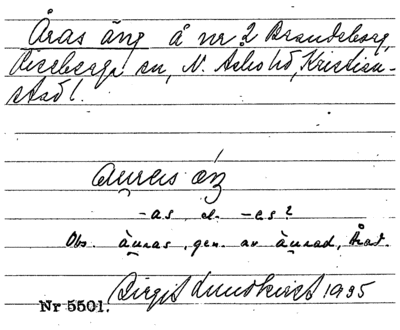 Åras äng å nr 2 Brandeberg,
Riseberga sn, N. Åsbo hd, Kristian-
stad l.
äu̯ras
-as el. -es?
Obs. äu̯ras, gen. av äu̯rad, Årad.
Birgit Lundkvist 1935
Nr 5501.